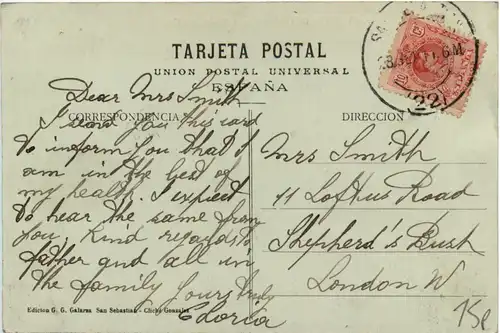 TARJETA POSTAL
UNION POSTAL UNIVERSAL
ESPAÑA
CORRESPONDENCIA
DIRECCION
Dear Mrs Smith
I send you this card
to inform you that I
am in the best of
my health. I expect
to hear the same from
you, kind regards to
father and all in
the family yours truly
Gloria
Mrs Smith
11 Loftus Road
Shepherd's Bush
London W
Edicion G. G. Galarza San Sebastian - Cliché Gonzalez